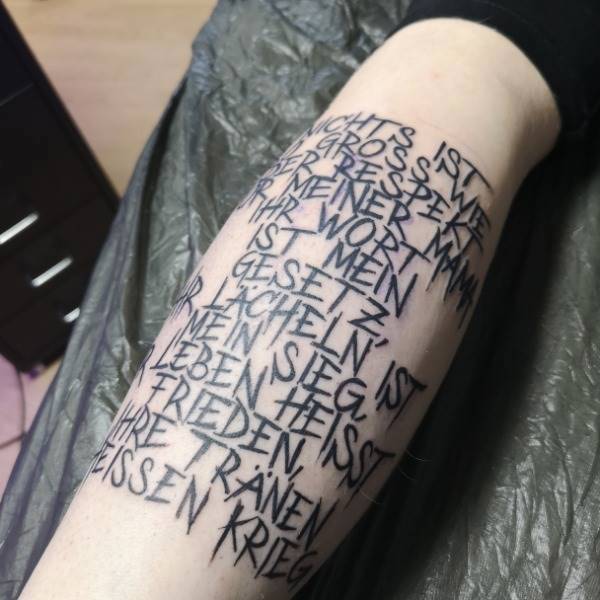 NICHTS IST
GROSS WIE
DER RESPEKT
VOR MEINER MAMA
IHR WORT
IST MEIN
GESETZ,
IHR LÄCHELN IST
MEIN SIEG,
IHR LEBEN HEISST
FRIEDEN,
IHRE TRÄNEN
HEISSEN KRIEG